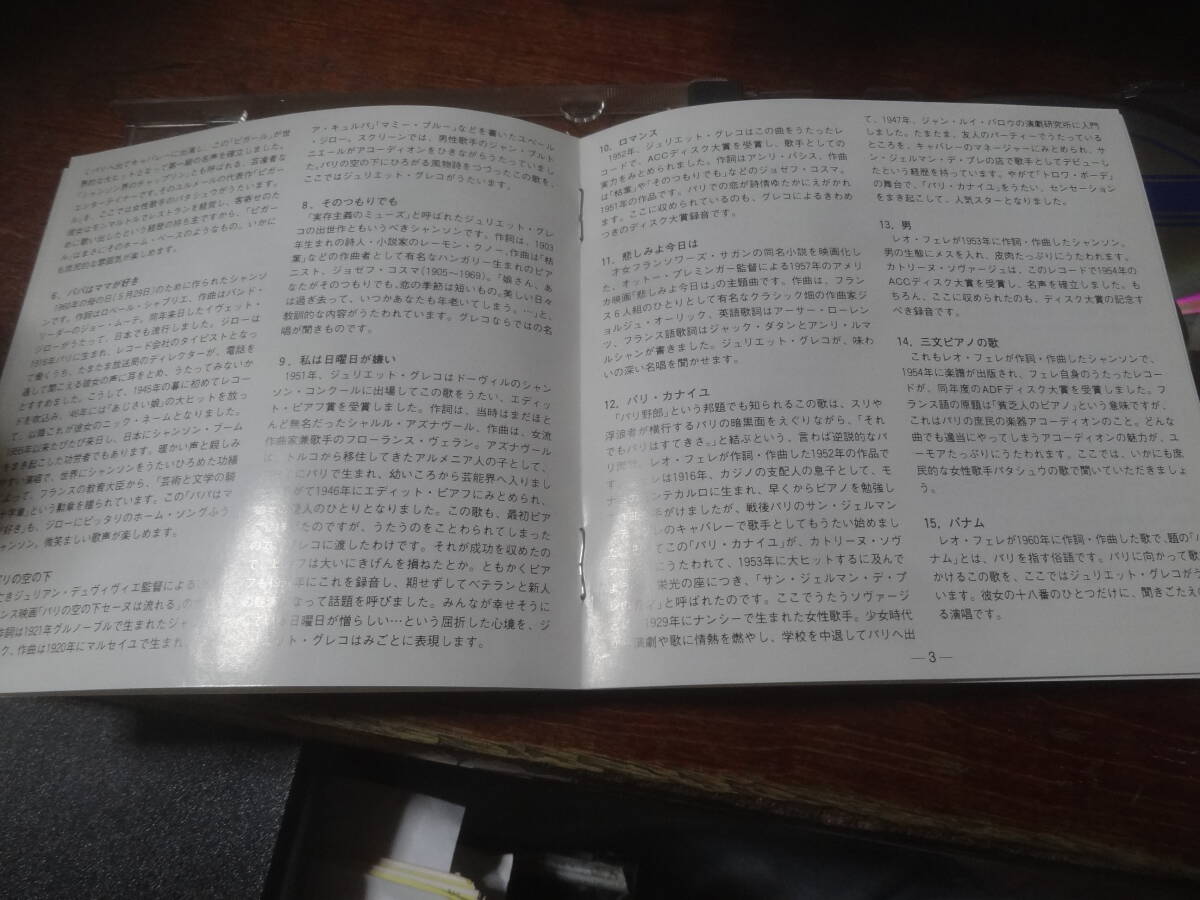 くパリへ出てキャバレーに出演し、この「ピガール」が世
界的な大ヒットとなって第一級の名声を確立しました。
「シャンソン界のチャップリン」とも呼ばれる、芸達者な
エンターテイナーです。そのユルメールの代表作「ピガー
ル」を、ここでは女性歌手のパタシュウがうたいます。
彼女はモンマルトルでレストランを経営し、客寄せのた
めに歌い出したという経歴の持ち主ですから、「ピガー
ル」はまさにそのホーム・ベースのようなもの。いかに
も庶民的な雰囲気が楽しめます。
6. パパはママが好き
1960年の母の日(5月29日)のために作られたシャンソ
ンです。作詞はロベール・シャブリエ、作曲はバンド・
リーダーのジョー・ムーテ。同年来日したイヴェット・
ジローがうたって、日本でも流行しました。ジローは
1916年パリに生まれ、レコード会社のタイピストとなっ
て働くうち、たまたま放送局のディレクターが、電話を
通して聞こえる彼女の声に耳をとめ、うたってみないか
とすすめました。こうして、1945年の暮に初めてレコー
ドを吹込み、46年には「あじさい娘」の大ヒットを放っ
て、以降これが彼女のニック・ネームとなりました。
1955年以来たびたび来日し、日本にシャンソン・ブーム
をまき起こした功労者でもあります。暖かい声と親しみ
やすい演唱で、世界にシャンソンをうたいひろめた功績
によって、フランスの教育大臣から、「芸術と文学の騎
士十字章」という勲章を贈られています。この「パパはマ
マが好き」も、ジローにピッタリのホーム・ソングふう
シャンソン。微笑ましい歌声が楽しめます。
パリの空の下
亡きジュリアン・デュヴィヴィエ監督による
ンス映画「パリの空の下セーヌは流れる」の
作詞は1921年グルノーブルで生まれたジャ
ク、作曲は1920年にマルセイユで生まれ、
ア・キュルパ」「マミー・ブルー」などを書いたユベール
・ジロー。スクリーンでは、男性歌手のジャン・ブルト
ニエールがアコーディオンをひきながらうたっていまし
た。パリの空の下にひろがる風物詩をつづったこの歌を、
ここではジュリエット・グレコがうたいます。
8. そのつもりでも
「実存主義のミューズ」と呼ばれたジュリエット・グレ
コの出世作ともいうべきシャンソンです。作詞は、1903
年生まれの詩人・小説家のレーモン・クノー、作曲は「枯
葉」などの作曲者として有名なハンガリー生まれのピア
ニスト、ジョゼフ・コスマ(1905〜1969)。「娘さん、あ
なたがそのつもりでも、恋の季節は短いもの。美しい日々
は過ぎ去って、いつかあなたも年老いてしまう。…」と、
教訓的な内容がうたわれています。グレコならではの名
唱が聞きものです。
9. 私は日曜日が嫌い
1951年、ジュリエット・グレコはドーヴィルのシャン
ソン・コンクールに出場してこの歌をうたい、エディッ
ト・ピアフ賞を受賞しました。作詞は、当時はまだほと
んど無名だったシャルル・アズナヴール、作曲は、女流
作曲家兼歌手のフローランス・ヴェラン。アズナヴール
は、トルコから移住してきたアルメニア人の子として、
にパリで生まれ、幼いころから芸能界へ入りまし
がて1946年にエディット・ピアフにみとめられ、
人のひとりとなりました。この歌も、最初ピア
たのですが、うたうのをことわられてしまった
レコに渡したわけです。それが成功を収めたの
フは大いにきげんを損ねたとか。ともかくピア
年にこれを録音し、期せずしてベテランと新人
なって話題を呼びました。みんなが幸せそうに
日曜日が憎らしい…という屈折した心境を、ジ
ット・グレコはみごとに表現します。
10. ロマンス
1952年、ジュリエット・グレコはこの曲をうたったレ
コードで、ACCディスク大賞を受賞し、歌手としての
実力をみとめられました。作詞はアンリ・バシス、作曲
は「枯葉」や「そのつもりでも」などのジョゼフ・コスマ。
1951年の作品です。パリでの恋が詩情ゆたかにえがかれ
ます。ここに収められているのも、グレコによるきわめ
つきのディスク大賞録音です。
11. 悲しみよ今日は
才女フランソワーズ・サガンの同名小説を映画化し
た、オットー・プレミンガー監督による1957年のアメリ
カ映画「悲しみよ今日は」の主題曲です。作曲は、フラン
ス6人組のひとりとして有名なクラシック畑の作曲家ジ
ョルジュ・オーリック、英語歌詞はアーサー・ローレン
ツ、フランス語歌詞はジャック・ダタンとアンリ・ルマ
ルシャンが書きました。ジュリエット・グレコが、味わ
いの深い名唱を聞かせます。
12. パリ・カナイユ
「パリ野郎」という邦題でも知られるこの歌は、スリや
浮浪者が横行するパリの暗黒面をえぐりながら、「それ
でもパリはすてきさ。」と結ぶという、言わば逆説的なパ
リ讃歌。レオ・フェレが作詞・作曲した1952年の作品で
す。フェレは1916年、カジノの支配人の息子として、モ
ナコのモンテカルロに生まれ、早くからピアノを勉強し
手がけましたが、戦後パリのサン・ジェルマン
レのキャバレーで歌手としてもうたい始めまし
てこの「パリ・カナイユ」が、カトリーヌ・ソヴ
にうたわれて、1953年に大ヒットするに及んで
栄光の座につき、「サン・ジェルマン・デ・プ
と呼ばれたのです。ここでうたうソヴァージ
1929年にナンシーで生まれた女性歌手。少女時代
演劇や歌に情熱を燃やし、学校を中退してパリへ出
て、1947年、ジャン・ルイ・バロウの演劇研究所に入門
しました。たまたま、友人のパーティーでうたっている
ところを、キャバレーのマネージャーにみとめられ、サ
ン・ジェルマン・デ・プレの店で歌手としてデビューし
たという経歴を持っています。やがて「トロワ・ボーデ」
の舞台で、「パリ・カナイユ」をうたい、センセーション
をまき起こして、人気スターとなりました。
13. 男
レオ・フェレが1953年に作詞・作曲したシャンソン。
男の生態にメスを入れ、皮肉たっぷりにうたわれます。
カトリーヌ・ソヴァージュは、このレコードで1954年の
ACCディスク大賞を受賞し、名声を確立しました。も
ちろん、ここに収められたのも、ディスク大賞の記念す
べき録音です。
14. 三文ピアノの歌
これもレオ・フェレが作詞・作曲したシャンソンで、
1954年に楽譜が出版され、フェレ自身のうたったレコー
ドが、同年度のADFディスク大賞を受賞しました。フ
ランス語の原題は「貧乏人のピアノ」という意味ですが、
これはパリの庶民の楽器アコーディオンのこと。どんな
曲でも適当にやってしまうアコーディオンの魅力が、ユ
ーモアたっぷりにうたわれます。ここでは、いかにも庶
民的な女性歌手パタシュウの歌で聞いていただきましょ
う。
15. パナム
レオ・フェレが1960年に作詞・作曲した歌で、題の「パ
ナム」とは、パリを指す俗語です。パリに向かって歌
かけるこの歌を、ここではジュリエット・グレコがう
います。彼女の十八番のひとつだけに、聞きごたえの
る演唱です。
—3—